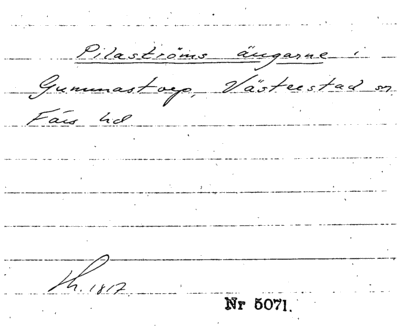 Pilaströms ängarne i
Gummastorp, Västerstad sn
Färs hd
Lh. 1817.
Nr 5071.